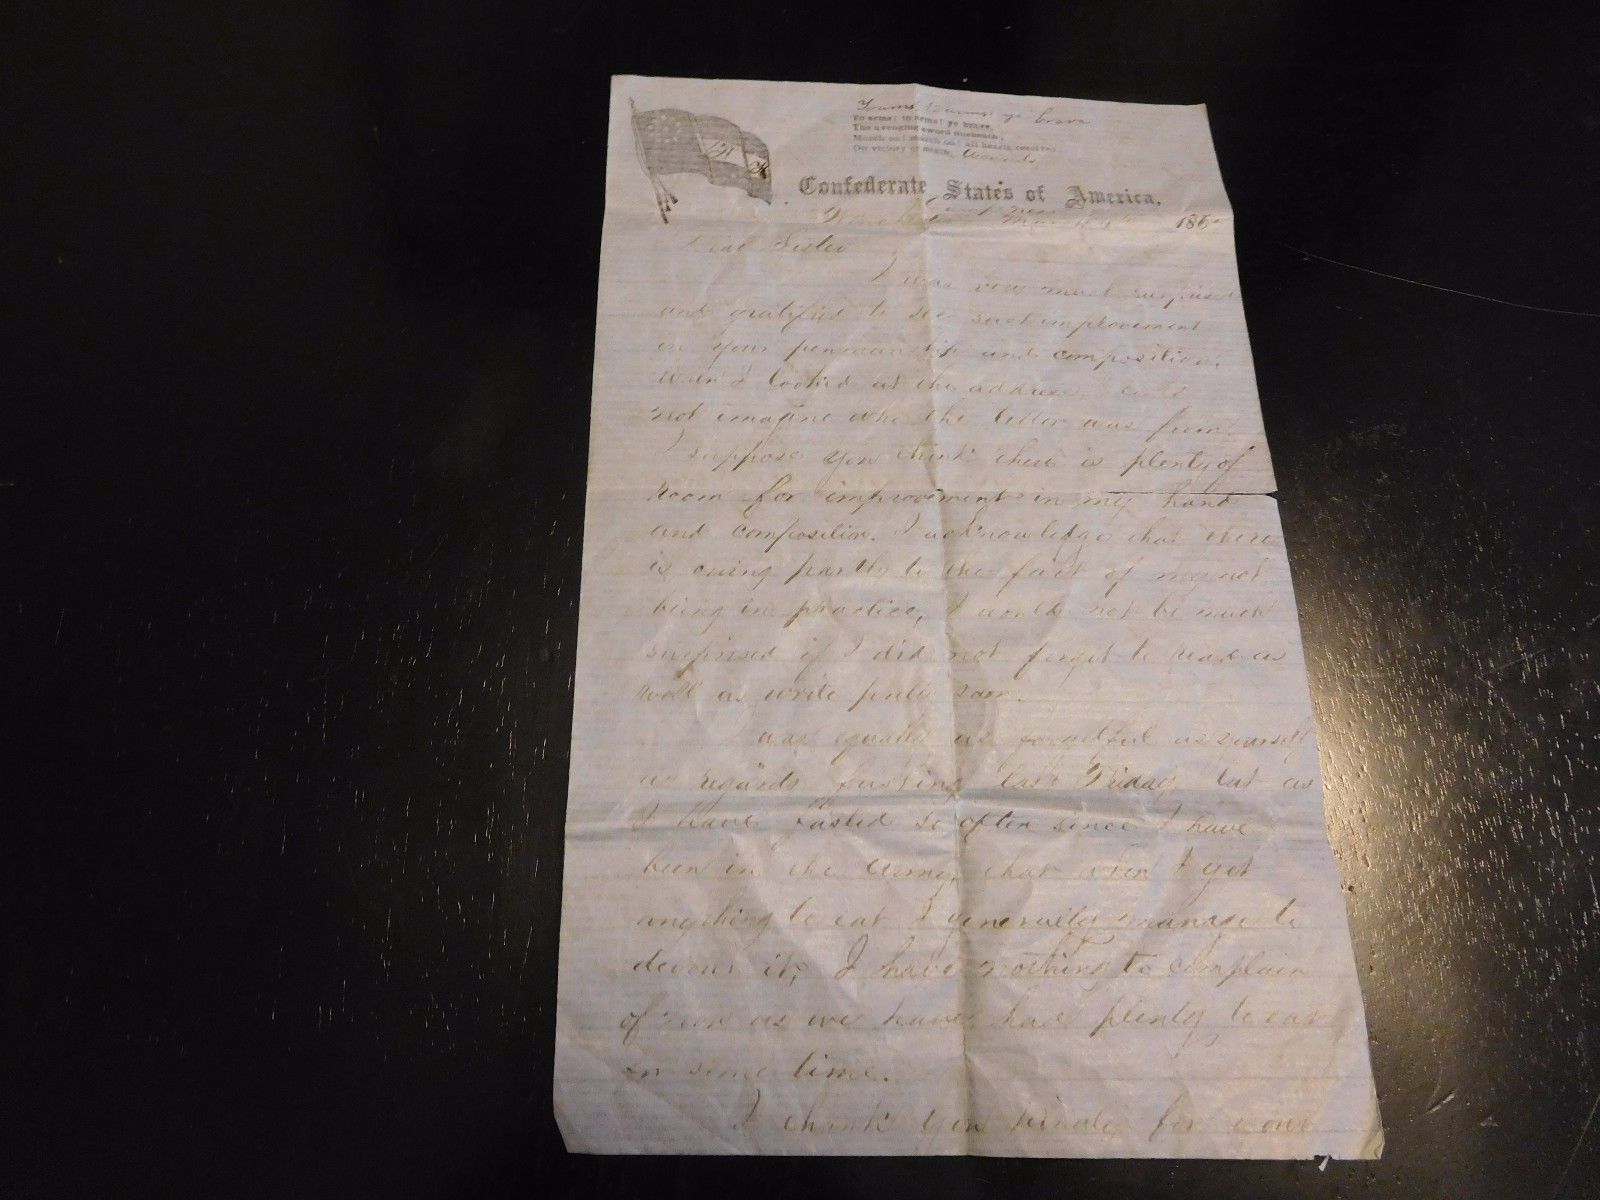 To arms! to arms! ye brave
To arms! to arms! ye brave,
The avenging sword unsheath;
March on! march on! all hearts resolved
On victory or death.
Confederate States of America,
March 186
Dear Sister
I was very much surprised
and gratified to see such improvement
in your penmanship and composition.
when I looked at the address I could
not imagine who the letter was from
I suppose you think there is plenty of
room for improvement in my hand
and composition. I acknowledge that there
is owing partly to the fact of my not
being in practice, I would not be much
surprised if I did not forget to read as
well as write pretty soon.
I was equally as forgetful as yourself
as regards fasting last Friday, but as
I have fasted so often since I have
been in the army, that when I get
anything to eat I generally manage to
devour it; I have nothing to complain
of now as we have had plenty to eat
for some time.
I thank you kindly for your